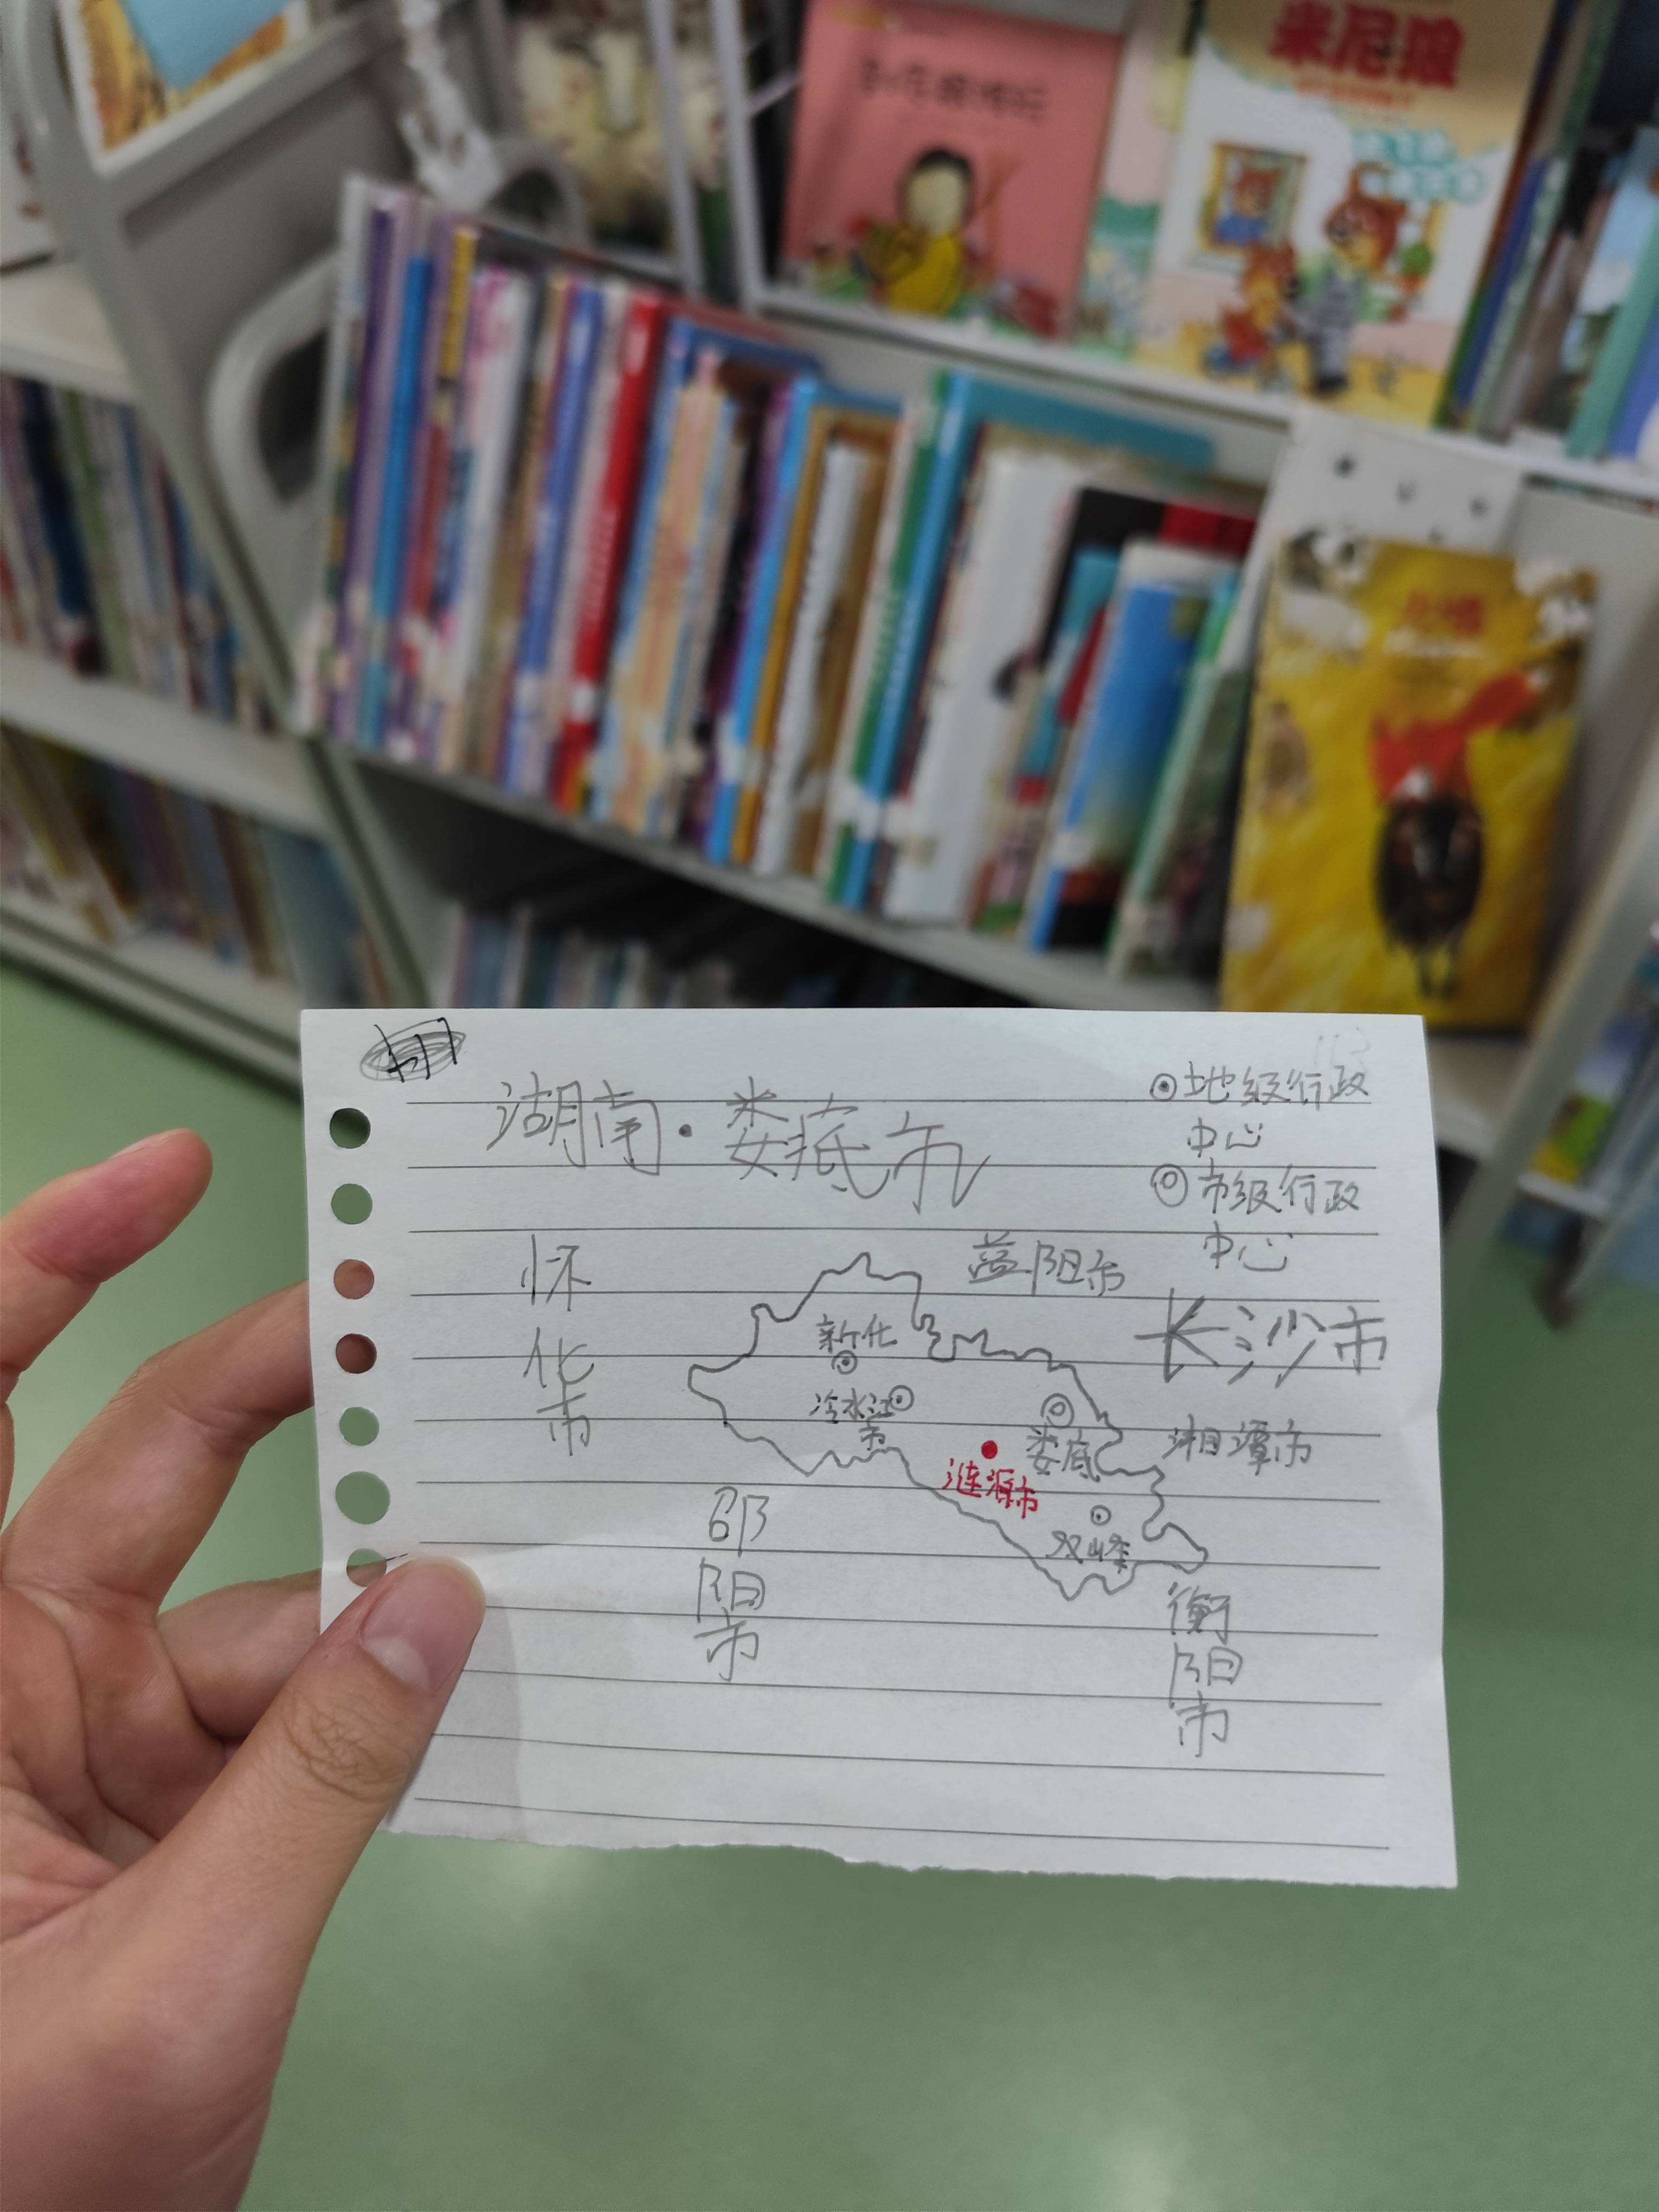 米尼狼
湖南·娄底市
地级行政
中心
市级行政
中心
益阳市
长沙市
怀
化
市
新化
冷水江
市
娄底
湘潭市
涟源市
双峰
邵
阳
市
衡
阳
市